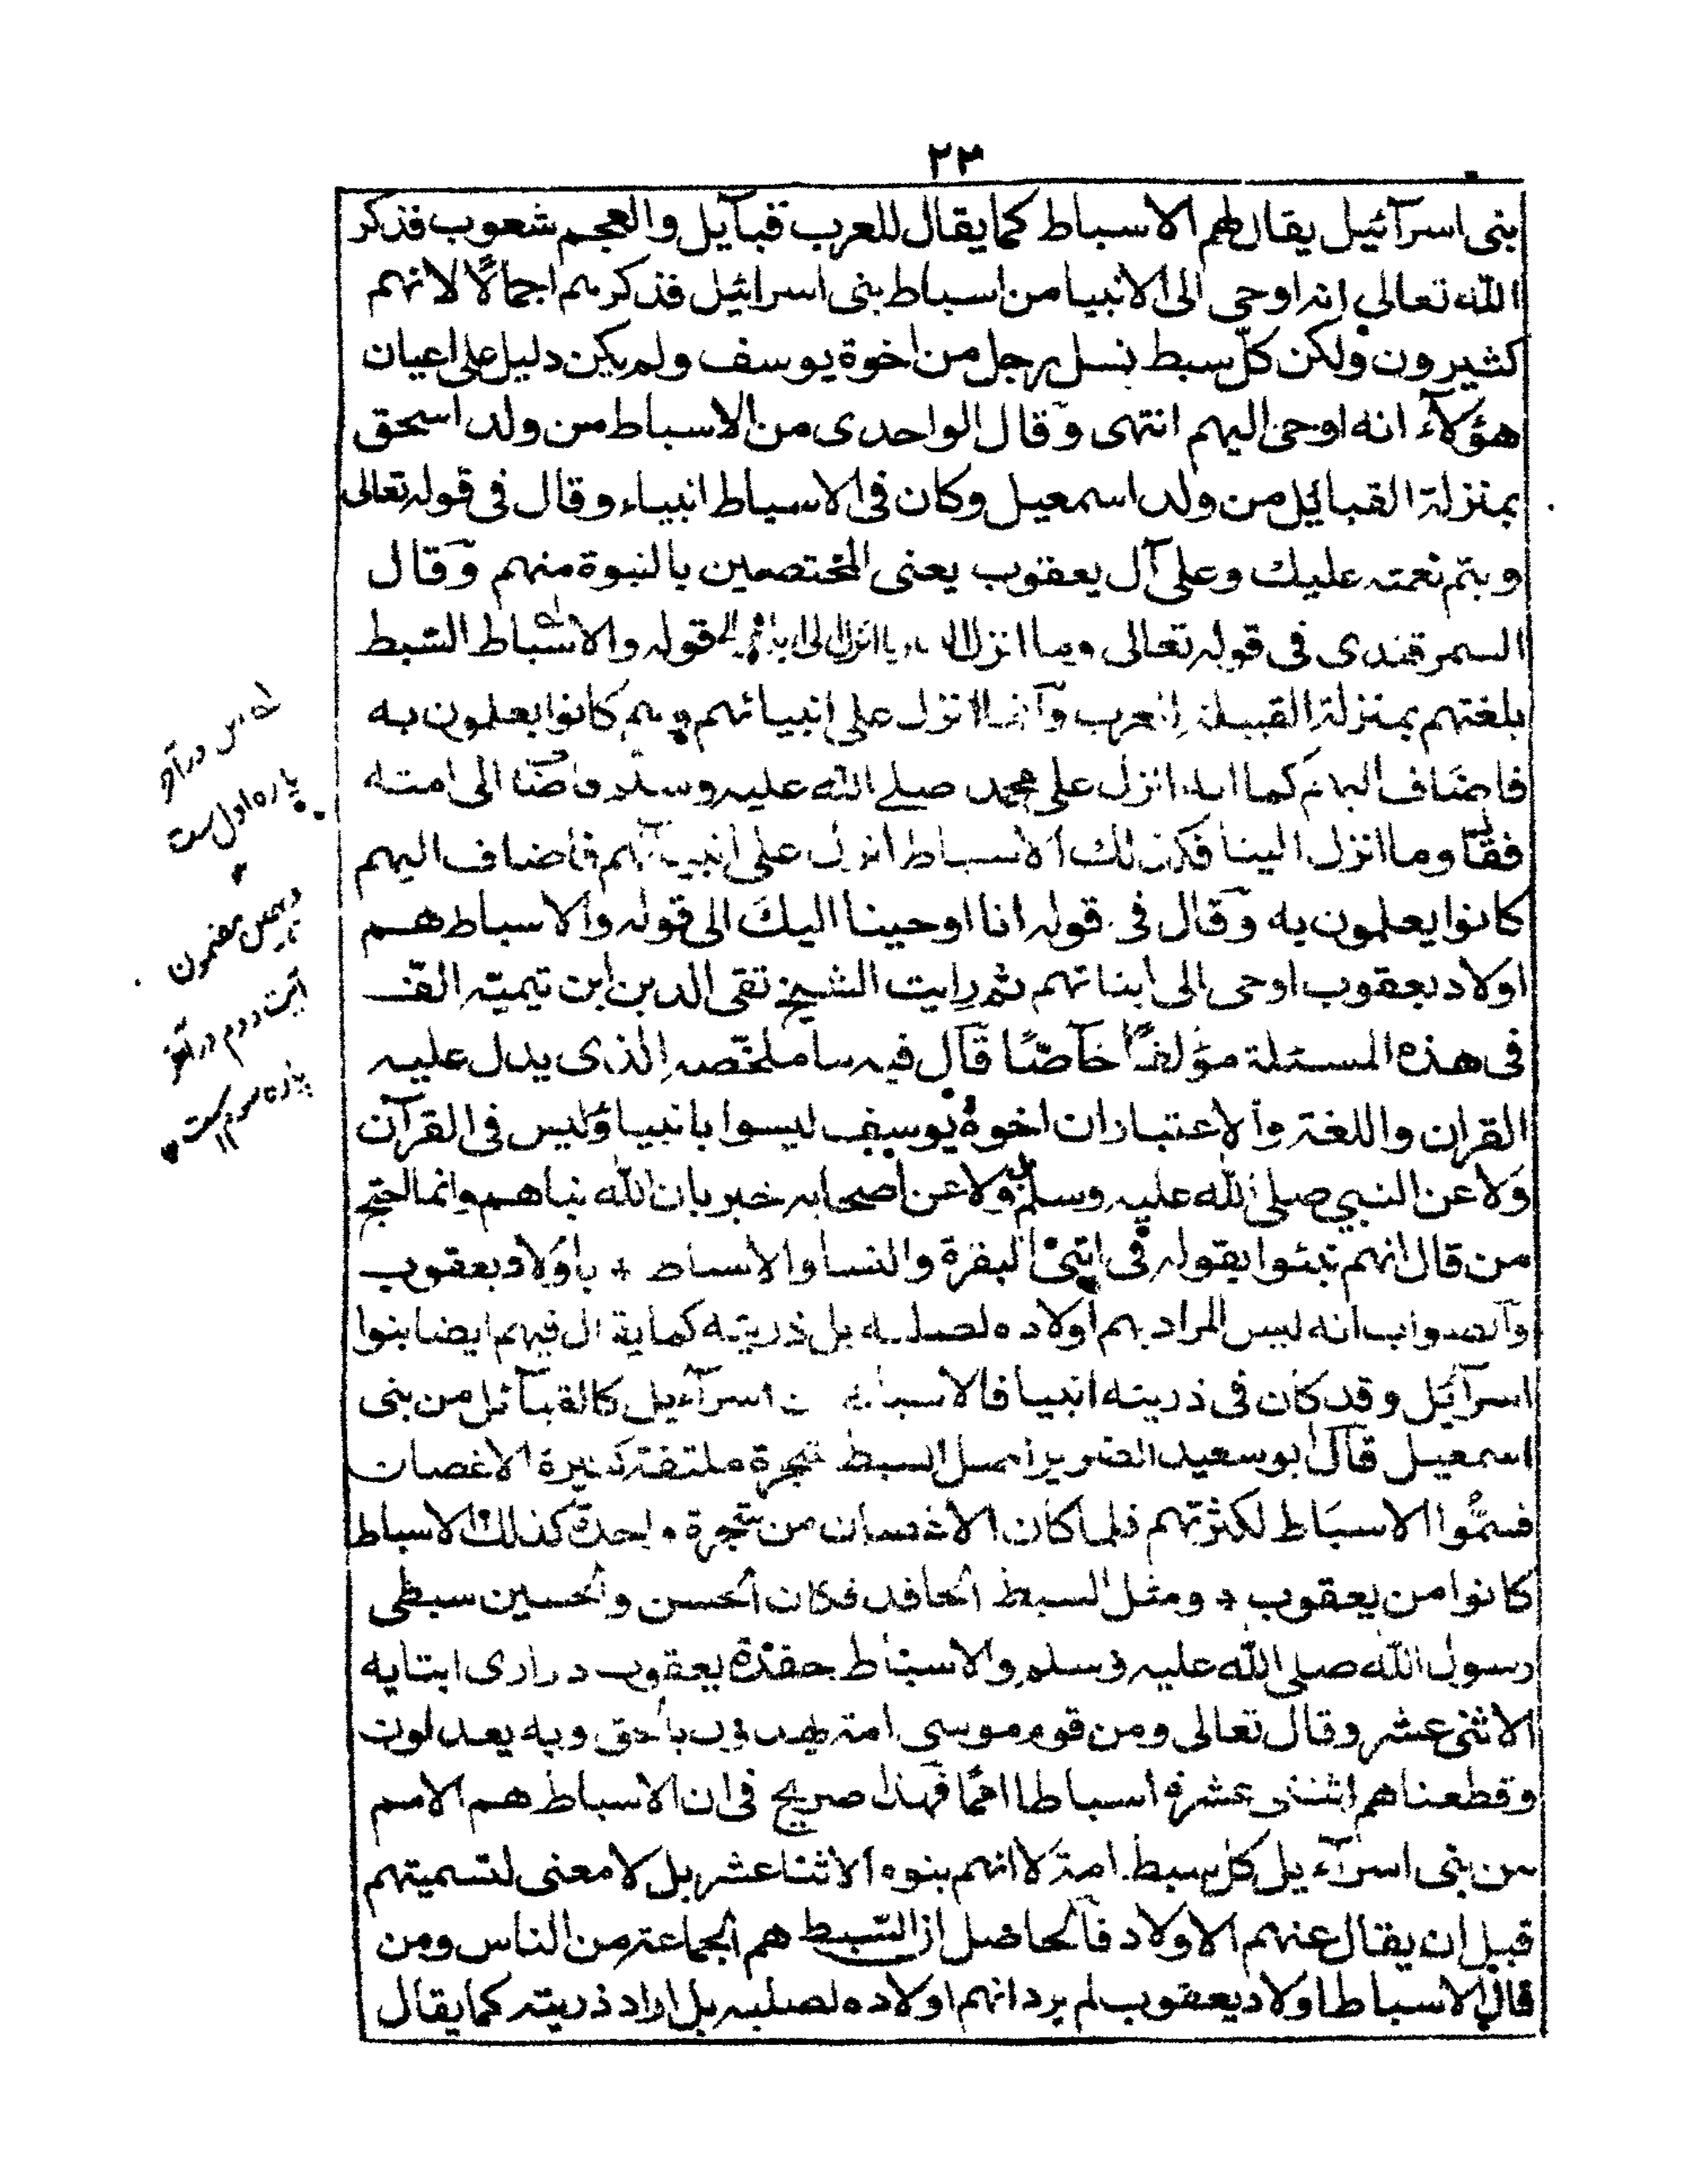 ٢٣
بنى اسرآئيل يقال لهم الاسباط كما يقال للعرب قبآيل والعجم شعوب فذكر
الله تعالى انه اوحى الى الانبيا من اسباط بنى اسرائيل فذكرهم اجمالًا لانهم
كثيرون ولكن كلّ سبط نسل رجل من اخوة يوسف ولم يكن دليل على اعيان
هؤلآء انه اوحى اليهم انتهى وقال الواحدى من الاسباط من ولد اسحق
بمنزلة القبائل من ولد اسمعيل وكان فى الاسباط انبياء وقال فى قوله تعالى
ويتم نعمته عليك وعلى آل يعقوب يعنى المختصين بالنبوة منهم وقال
السمرقندى فى قوله تعالى وما انزل الى قوله والاسباط السّبط
بلغتهم بمنزلة القبيلة للعرب وانما انزل على انبيائهم وهم كانوا يعلمون به
فاضاف اليهم كما انه انزل على محمد صلے الله عليه وسلم فاضا الى امته
فقا وما انزل الينا فكذلك الاسباط انزل على انبيائهم فاضاف اليهم
كانوا يعلمون به وقال فى قوله انا اوحينا اليك الى قوله والاسباط هم
اولاد يعقوب اوحى الى ابنائهم ثم رايت الشيخ تقى الدين ابن تيميّه الّف
فى هذه المسئلة مؤلفًا خآصًا قال فيه ما ملخّصه الذى يدل عليه
القران واللغة والاعتبار ان اخوة يوسف ليسوا بانبيا وليس فى القرآن
ولا عن النبي صلى الله عليه وسلم ولا عن اصحابه خبر بان الله نباهم وانما احتج
من قال انهم نبئوا بقوله فى ايتى البقرة والنسا والاسباط + باولاد يعقوب
والصواب انه ليس المراد بهم اولاده لصلبه بل ذريته كما يقال فيهم ايضا بنوا
اسرآئيل وقد كان فى ذريته انبيا فالاسباط اسرآءيل كالقبآئل من بنى
اسمعيل قال ابو سعيد الضرير اصل السبط شجرة ملتفة كثيرة الاغصان
فسمُّوا الاسباط لكثرتهم فلما كان الاغصان من شجرة واحدة كذلك الاسباط
كانوا من يعقوب + ومثل السبط الحافد فكان الحسن والحسين سبطى
رسول الله صلى الله عليه وسلم والاسباط حفدة يعقوب درارى ابنايه
الاثنى عشر وقال تعالى ومن قوم موسى امة يهدون بالحق وبه يعدلون
وقطعناهم اثنتى عشرة اسباطا امما فهذا صريح فى ان الاسباط هم الامم
من بنى اسرآءيل كل سبط امة لا انهم بنوه الاثنا عشر بل لا معنى لتسميتهم
قبل ان يقال عنهم الاولاد فالحاصل ان السّبط هم الجماعة من الناس ومن
قال الاسباط اولاد يعقوب لم يرد انهم اولاده لصلبه بل اراد ذريته كما يقال
در آخر
پاره اول ست
وہمیں مضمون
آیت دوم در آخر
پاره سوم است